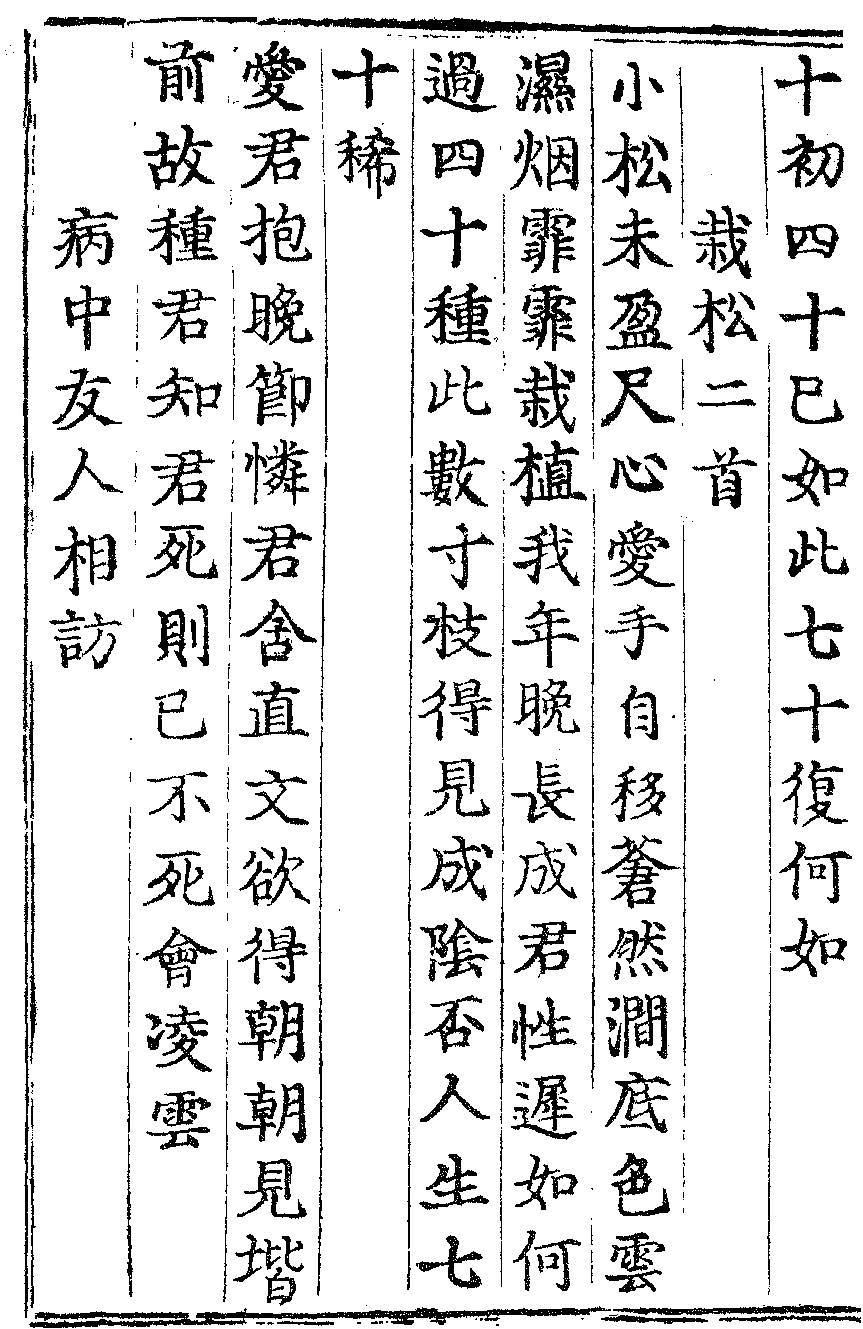 十初四十已如此七十復何如
栽松二首
小松未盈尺心愛手自移蒼然澗底色雲
濕烟霏霏栽植我年晚長成君性遲如何
過四十種此數寸枝得見成陰否人生七
十稀
愛君抱晚節憐君含直文欲得朝朝見堦
前故種君知君死則已不死會凌雲
病中友人相訪